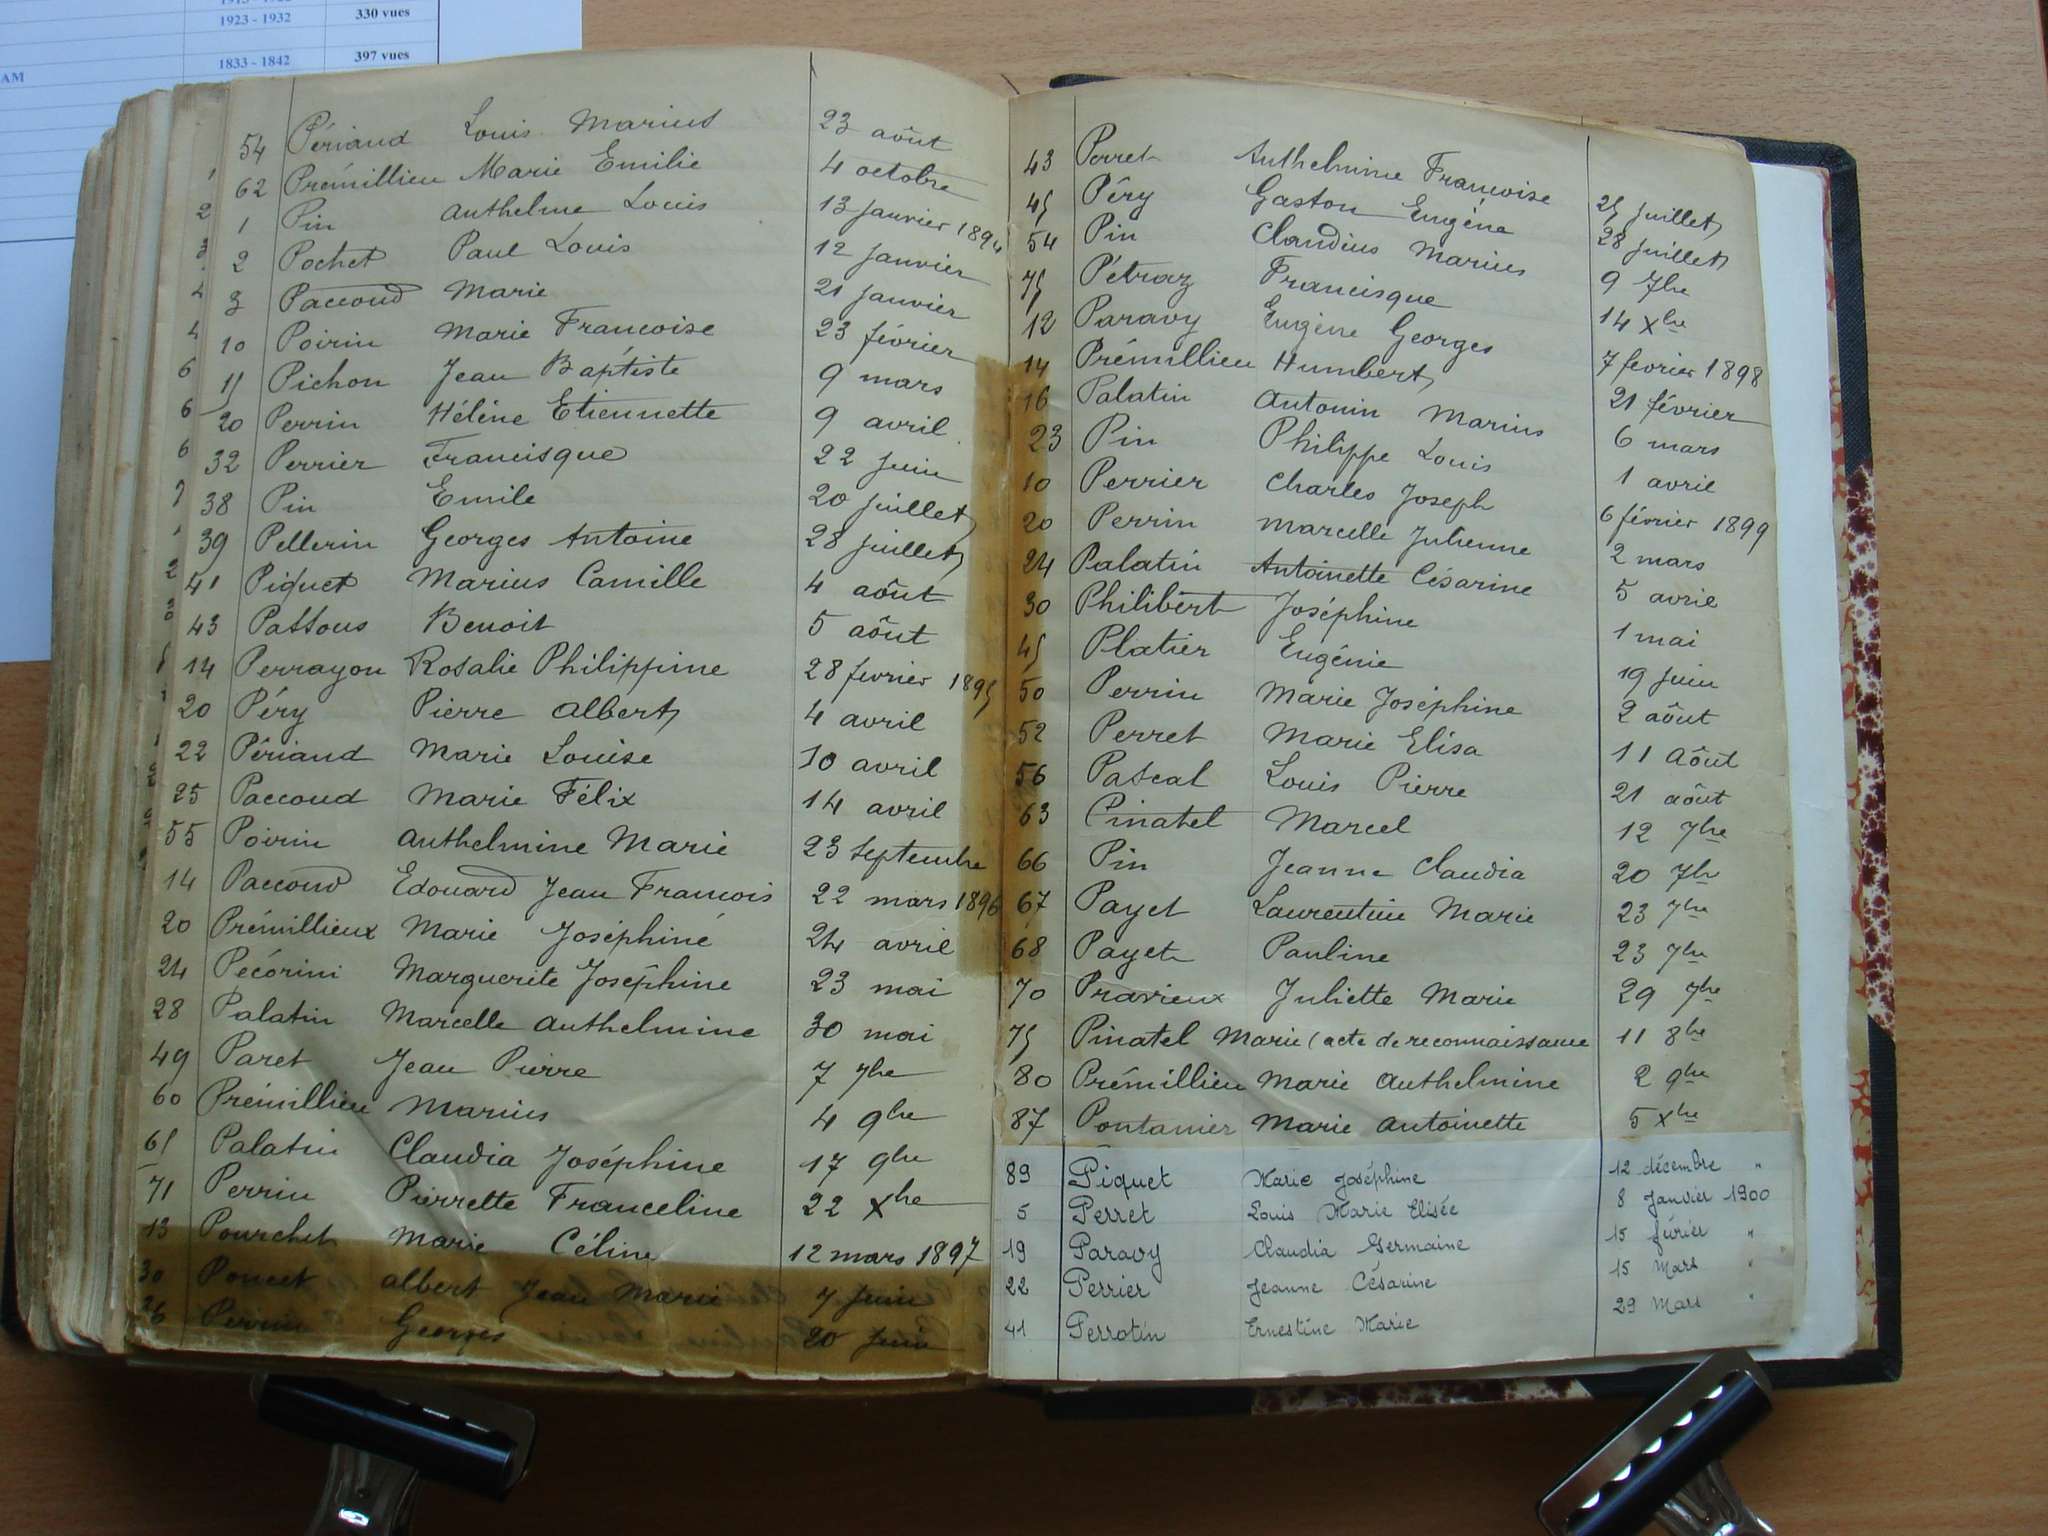 1923 - 1932 330 vues
1833 - 1842 397 vues
AM
54 Périand Louis Marius 23 aôut
62 Prémillieu Marie Emilie 4 octobre
1 Pin Anthelme Louis 13 janvier 1894
2 Pochet Paul Louis 12 janvier
3 Paccoud Marie 21 janvier
10 Poirin Marie Françoise 23 février
15 Pichon Jean Baptiste 9 mars
20 Perrin Hélène Etiennette 9 avril
32 Perrier Francisque 22 juin
38 Pin Emile 20 juillet
39 Pellerin Georges Antoine 28 juillet
41 Piquet Marius Camille 4 aôut
43 Passous Benoit 5 aôut
14 Perrayon Rosalie Philippine 28 fevrier 1895
20 Péry Pierre Albert 4 avril
22 Périand Marie Louise 10 avril
25 Paccoud Marie Félix 14 avril
55 Poirin Anthelmine Marie 23 septembre
14 Paccoud Edouard Jean François 22 mars 1896
20 Prémillieux Marie Joséphine 24 avril
24 Pécorini Marguerite Joséphine 23 mai
28 Palatin Marcelle Anthelmine 30 mai
49 Paret Jean Pierre 7 7bre
60 Prémillieu Marius 4 9bre
65 Palatin Claudia Joséphine 17 9bre
71 Perrin Pierrette Franceline 22 Xbre
13 Pourchet Marie Céline 12 mars 1897
30 Poncet Albert Jean Marie 7 juin
36 Perrin Georges 20 juin
43 Perret Anthelmine Françoise 25 juillet
45 Péry Gaston Eugène 28 juillet
54 Pin Claudius Marius 9 7bre
75 Pétraz Francisque 14 Xbre
12 Paravy Eugène Georges 7 fevrier 1898
14 Prémillieu Humbert 21 février
16 Palatin Antonin Marius 6 mars
23 Pin Philippe Louis 1 avril
10 Perrier Charles Joseph 6 février 1899
20 Perrin Marcelle Julienne 2 mars
24 Palatin Antoinette Césarine 5 avril
30 Philibert Joséphine 1 mai
45 Platier Eugénie 19 juin
50 Perrin Marie Joséphine 2 aôut
52 Perret Marie Elisa 11 Aôut
56 Pascal Louis Pierre 21 aôut
63 Pinatel Marcel 12 7bre
66 Pin Jeanne Claudia 20 7bre
67 Payet Laurentine Marie 23 7bre
68 Payet Pauline 23 7bre
70 Pravieux Juliette Marie 29 7bre
75 Pinatel Marie (acte de reconnaissance 11 8bre
80 Prémillieu Marie Anthelmine 2 9bre
87 Pontanier Marie Antoinette 5 Xbre
89 Piquet Marie Joséphine 12 décembre "
5 Perret Louis Marie Elisée 8 Janvier 1900
19 Paravy Claudia Germaine 15 février "
22 Perrier Jeanne Césarine 15 Mars "
41 Perrotin Ernestine Marie 29 Mars "